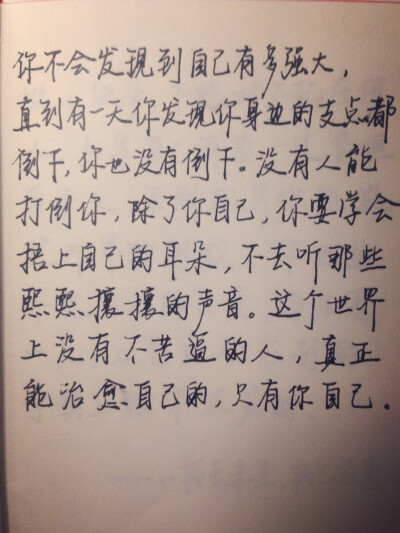 你不会发现到自己有多强大,
直到有一天你发现你身边的支点都
倒下,你也没有倒下。没有人能
打倒你,除了你自己,你要学会
捂上自己的耳朵,不去听那些
熙熙攘攘的声音。这个世界
上没有不苦逼的人,真正
能治愈自己的,只有你自己。